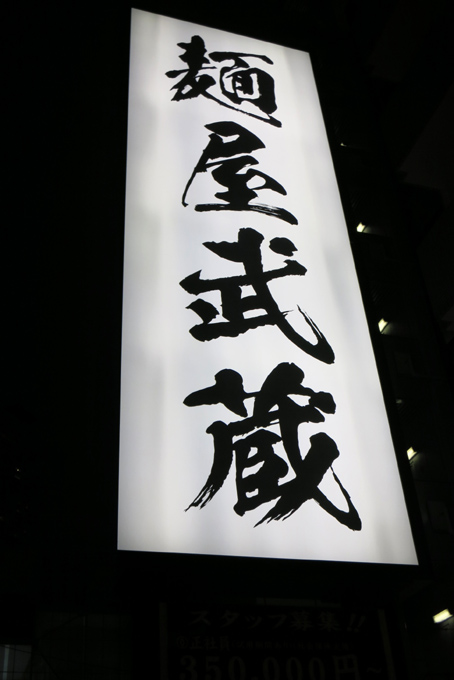 麺屋武蔵
スタッフ募集!!
350,000円~